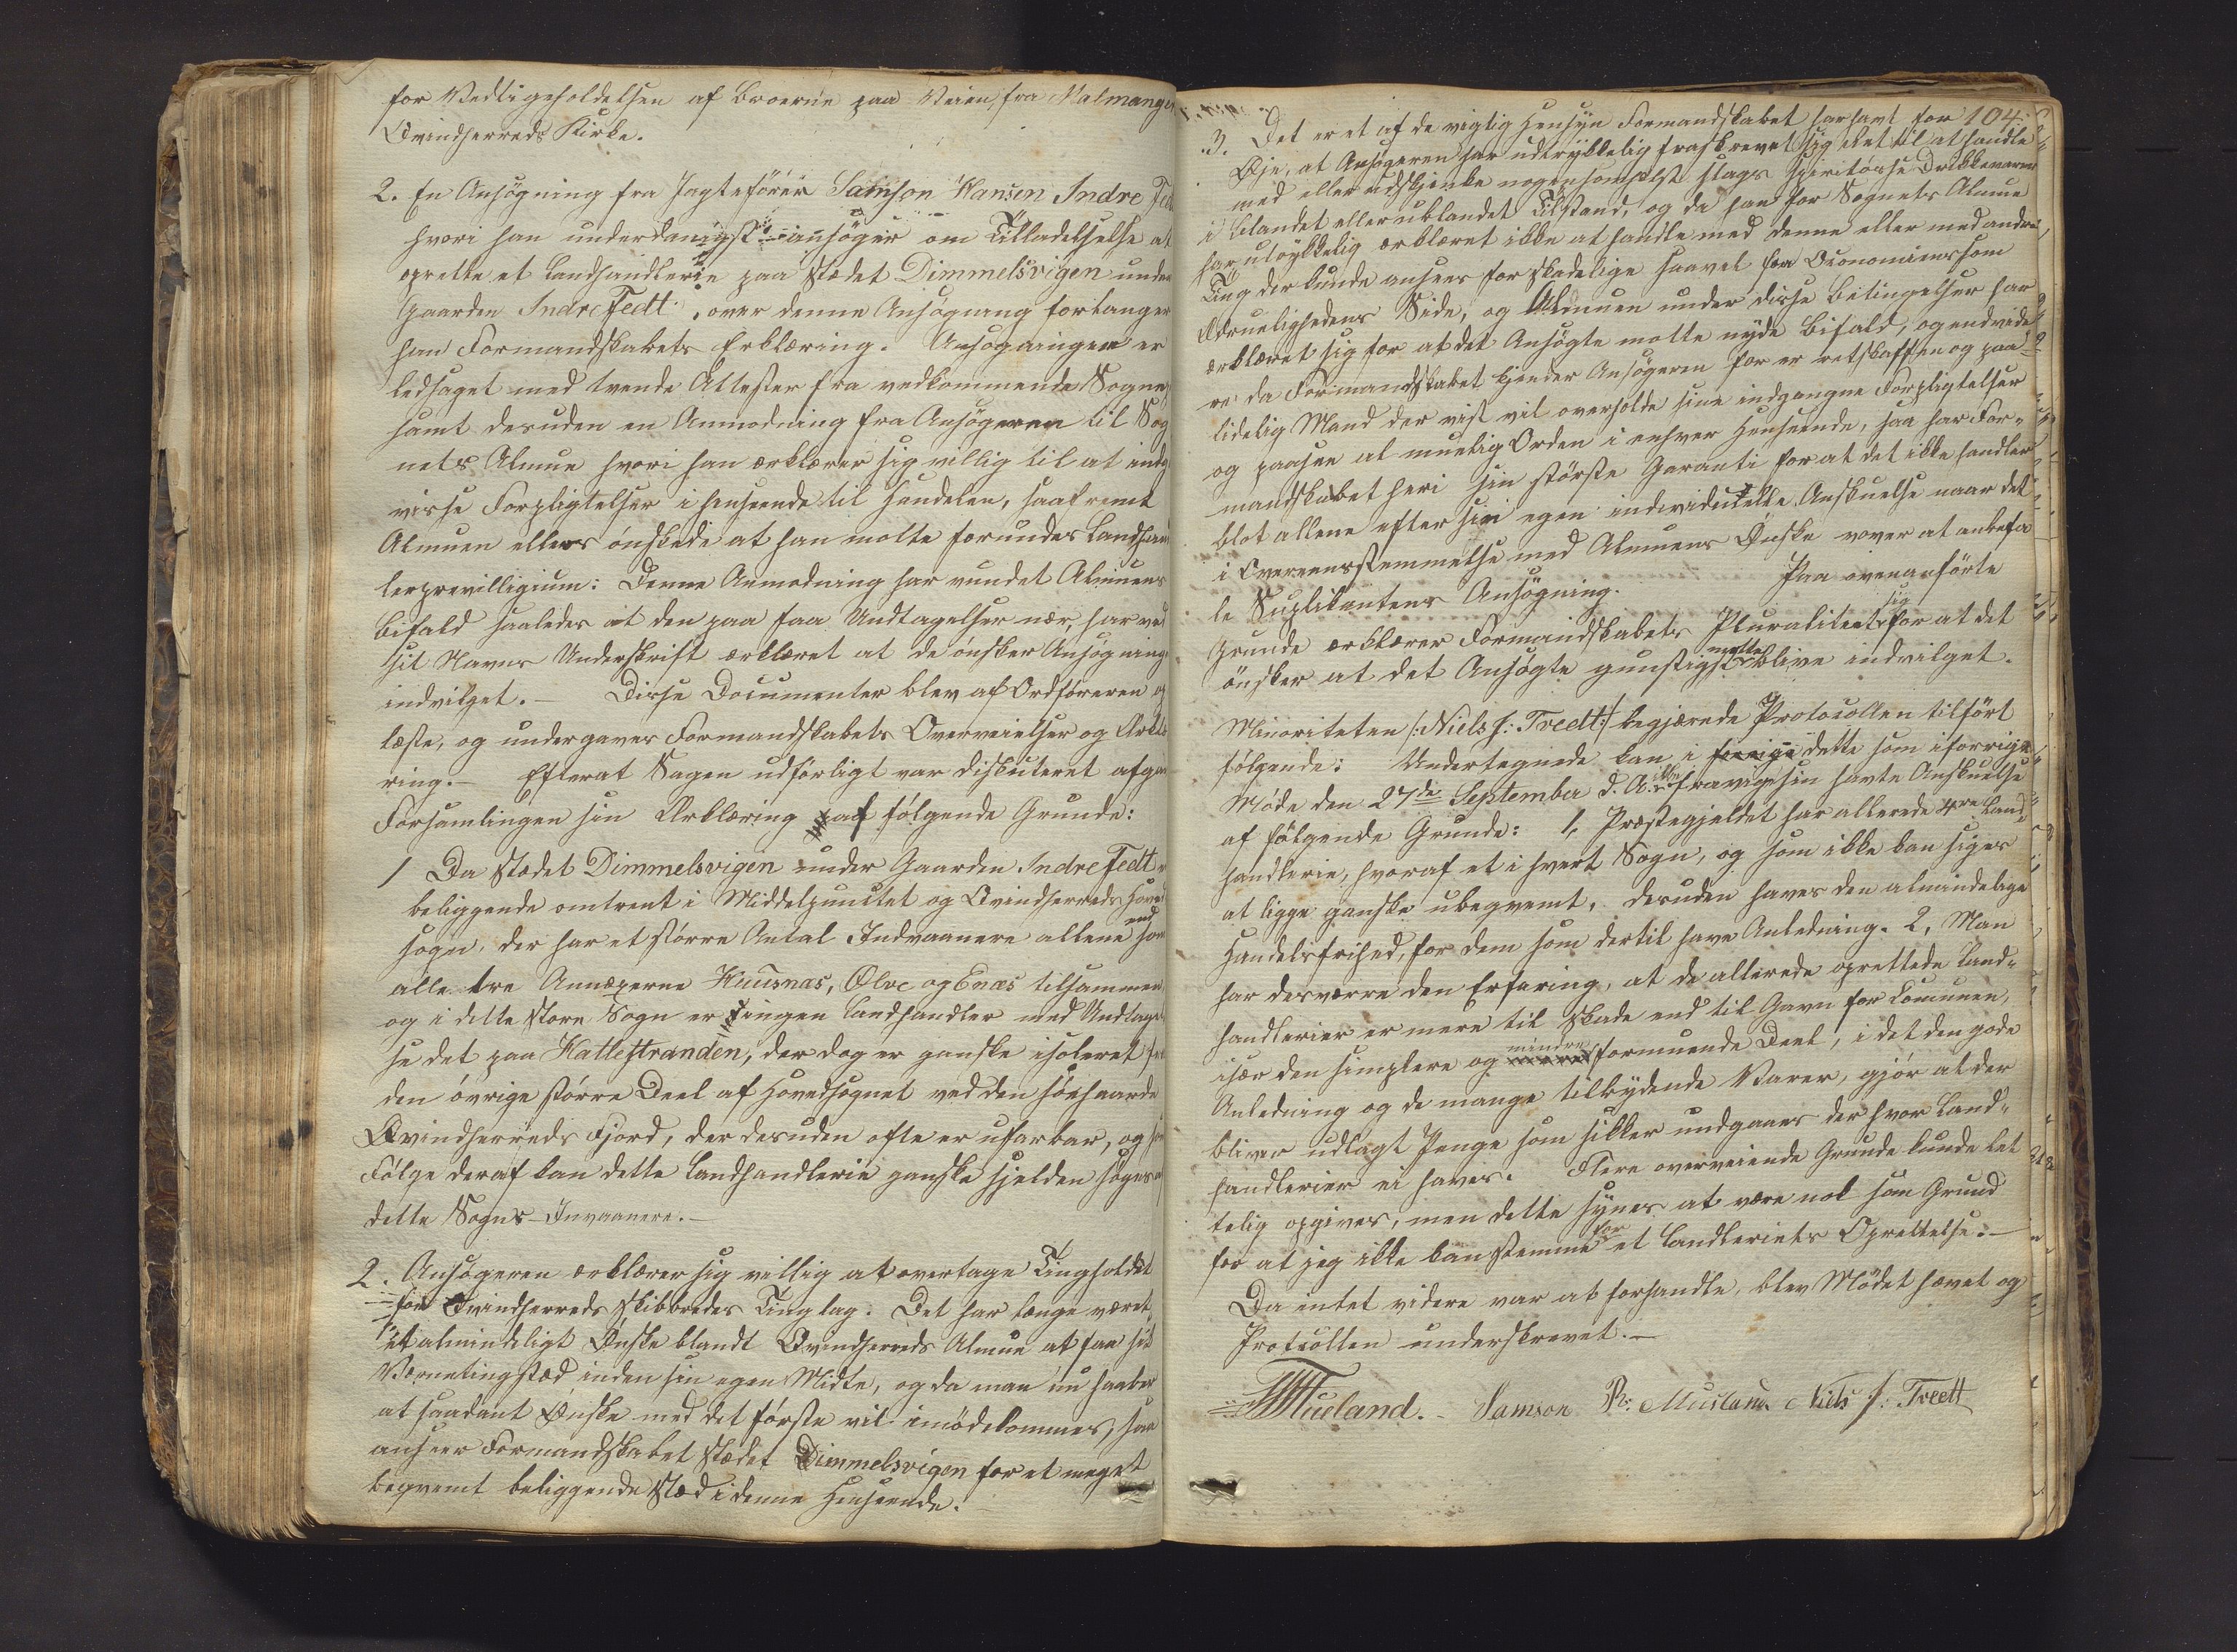 for Vedligeholdelsen af Broerne paa Veien fra Malmanger
Qvindherreds Kirke.
2. En Ansögning fra Jagteförer Samson Hansen Indre Fedt
hvori han underdanigst ansöger om Tilladelselse at
oprette et Landhandlerie paa Stædet Dimmelsvigen under
Gaarden Indre Fedt, over denne Ansögning forlanger
han Formandskabets Erklæring. Ansögningen er
ledsaget med tvende Attester fra vedkommende Sogne,
samt desuden en Anmodning fra Ansögeren til Sog
nets Almue hvori han erklærer sig villig til at indg
visse Forpligtelser i henseende til Handelen, saafremt
Almuen ellers önskede at han motte forundes Landhand
lerprevilligium: Denne Anmodning har vundet Almuens
Bifald saaledes at den paa faa Undtagelser nær, har ved
sit Navns Underskrift erklæret at de önsker Ansögning
indvilget. — Disse Documenter blev af Ordföreren op
læste, og undergaves Formandskabets Overveielser og Erklæ
ring. — Efterat Sagen udförligt var diskuteret afgav
Forsamlingen sin Erklæring af fölgende Grunde:
1 Da Stædet Dimmelsvigen under Gaarden Indre Fedt er
beliggende omtrent i Middelpunctet og Qvindherreds Hoved
sogn, der har et större Antal Indvaanere allene end som
alle tre Annexerne Huusnæs, Ølve og Enæs tilsammen
og i dette store Sogn er ingen Landhandler med Undtagel
se det paa Hatlestranden, der dog er ganske isoleret fra
den övrige större Deel af Hovedsognet ved den söehaarde
Qvindherreds Fjord, der desuden ofte er ufarbar, og som
Fölge deraf kan dette Landhandlerie ganske sjelden söges af
dette Sogns Invaanere. —
2. Ansögeren erklærer sig villig at overtage Tingholdet
for Qvindherreds Skibbredes Tinglag. Det har længe været
et almindeligt Önske blandt Qvindherreds Almue at faa sit
Værnetingstæd inden sin egen Midte, og da man nu haaber
at saadant Önske med det förste vil imödekommes, saa
anseer Formandskabet Stædet Dimmelsvigen for et meget
beqvemt beliggende Stæd i denne Henseende. —
104.
3. Det er et af de vigtig Hensyn Formandskabet har havt for
Øje, at Ansögeren har udtrykkelig fraskrevet sig Ret til at handle
med eller udskjenke nogensomhelst slags spirituose Drikkevarer
i blandet eller ublandet Tilstand, og da han for Sognets Almue
har utrykkelig erklæret ikke at handle med denne eller med andre
Ting der kunde ansees for skadelige saavel fra Oeconomiens som
Ædrueligheden Side, og Almuen under disse Betingelser har
erklæret sig for at det Ansögte motte nyde Bifald, og endvide
re da Formandskabet kjender Ansögeren for er retskaffen og paa-
lidelig Mand der vist vil overholde sine indgangne Forpligtelser
og paasee al muelig Orden i enhver Henseende, saa har For-
mandskabet heri sin störste Garanti for at det ikke handler
blot allene efter sin egen individuelle Anskuelse naar det
i Overeensstemmelse med Almuens Önske vover at anbefa
le Suplikantens Ansögning. Paa ovenanförte
Grunde erklærer Formandskabets Pluralitet sig for at det
önsker at det Ansögte gunstigst motte blive indvilget.
Minoriteten /: Niels J: Tvedt :/ begjærede Protocollen tilfört
fölgende: Undertegnede kan i forrige dette som i forrige
Möde den 27de September d. A. ikke fravige sin havte Anskuelse
af fölgende Grunde: 1, Præstegjeldet har allerede 4re Land-
handlerie, hvoraf et i hvert Sogn, og som ikke kan siges
at ligge ganske ubeqvemt, desuden haves den almindelige
Handelsfrihed, for dem som dertil have Anledning. 2, Man
har desværre den Erfaring, at de allerede oprettede Land-
handlerier er mere til Skade end til Gavn for Comunen,
især den simplere og mindre formuende Deel, i det den gode
Anledning og de mange tilbydende Varer, gjör at der
bliver udlagt Penge som sikker undgaaes der hvor Land-
handlerier ei haves. Flere overveiende Grunde kunde let
telig opgives, men dette synes at være nok som Grund
for at jeg ikke kan stemme for et Landleriets Oprettelse. —
Da intet videre var at forhandle, blev Mödet hævet og
Protcollen underskrevet. —
Tueland. Samson R: Musland Niels J: Tvedt